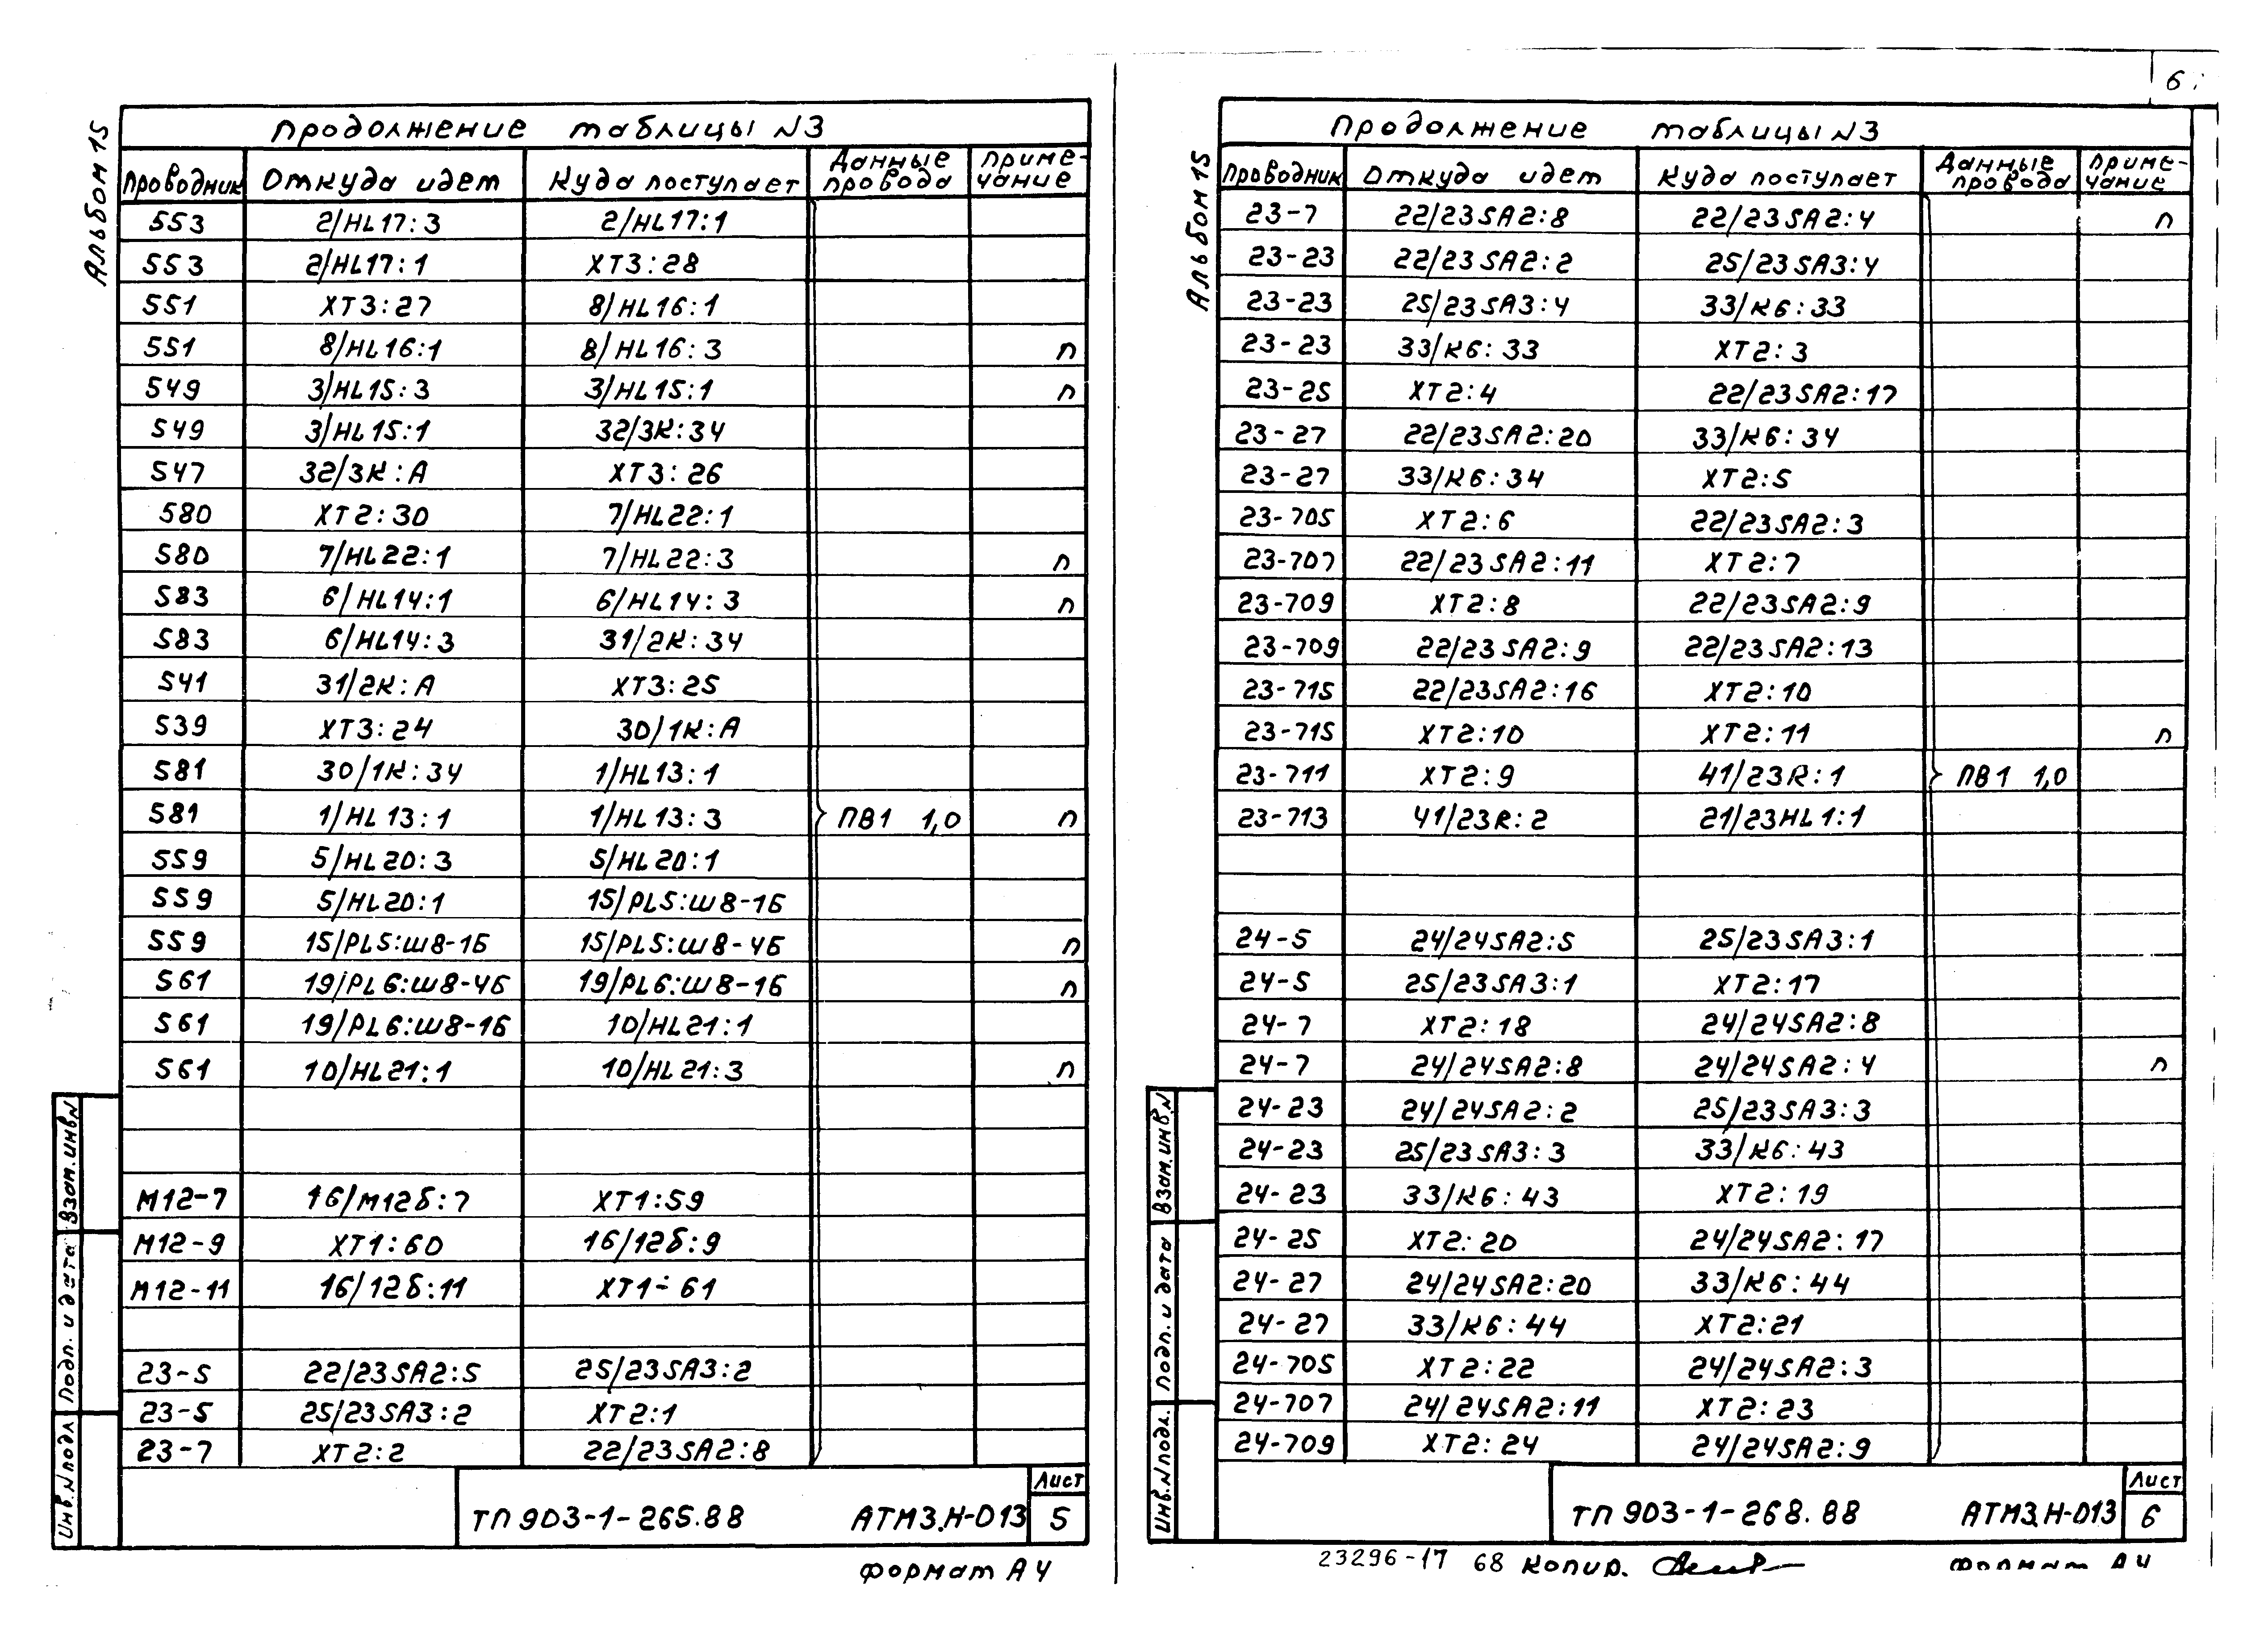 6
Альбом 15
Продолжение таблицы N3
Проводник Откуда идет Куда поступает Данные провода Приме-чание
553 2/HL17:3 2/HL17:1
553 2/HL17:1 XT3:28
551 XT3:27 8/HL16:1
551 8/HL16:1 8/HL16:3 п
549 3/HL15:3 3/HL15:1 п
549 3/HL15:1 32/3K:34
547 32/3K:A XT3:26
580 XT2:30 7/HL22:1
580 7/HL22:1 7/HL22:3 п
583 6/HL14:1 6/HL14:3 п
583 6/HL14:3 31/2K:34
541 31/2K:A XT3:25
539 XT3:24 30/1K:A
581 30/1K:34 1/HL13:1
581 1/HL13:1 1/HL13:3 ПВ1 1,0 п
559 5/HL20:3 5/HL20:1
559 5/HL20:1 15/PL5:Ш8-1Б
559 15/PL5:Ш8-1Б 15/PL5:Ш8-4Б п
561 19/PL6:Ш8-4Б 19/PL6:Ш8-1Б п
561 19/PL6:Ш8-1Б 10/HL21:1
561 10/HL21:1 10/HL21:3 п
M12-7 16/M12б:7 XT1:59
M12-9 XT1:60 16/12б:9
M12-11 16/12б:11 XT1÷61
23-5 22/23SA2:5 25/23SA3:2
23-5 25/23SA3:2 XT2:1
23-7 XT2:2 22/23SA2:8
Взам.инв.N
Подп. и дата
Инв.N подл.
ТП 903-1-265.88 АТМ3.Н-013 Лист 5
Формат А4
Альбом 15
Продолжение таблицы N3
Проводник Откуда идет Куда поступает Данные провода Приме-чание
23-7 22/23SA2:8 22/23SA2:4 п
23-23 22/23SA2:2 25/23SA3:4
23-23 25/23SA3:4 33/K6:33
23-23 33/K6:33 XT2:3
23-25 XT2:4 22/23SA2:17
23-27 22/23SA2:20 33/K6:34
23-27 33/K6:34 XT2:5
23-705 XT2:6 22/23SA2:3
23-707 22/23SA2:11 XT2:7
23-709 XT2:8 22/23SA2:9
23-709 22/23SA2:9 22/23SA2:13
23-715 22/23SA2:16 XT2:10
23-715 XT2:10 XT2:11 п
23-711 XT2:9 41/23R:1 ПВ1 1,0
23-713 41/23R:2 21/23HL1:1
24-5 24/24SA2:5 25/23SA3:1
24-5 25/23SA3:1 XT2:17
24-7 XT2:18 24/24SA2:8
24-7 24/24SA2:8 24/24SA2:4 п
24-23 24/24SA2:2 25/23SA3:3
24-23 25/23SA3:3 33/K6:43
24-23 33/K6:43 XT2:19
24-25 XT2:20 24/24SA2:17
24-27 24/24SA2:20 33/K6:44
24-27 33/K6:44 XT2:21
24-705 XT2:22 24/24SA2:3
24-707 24/24SA2:11 XT2:23
24-709 XT2:24 24/24SA2:9
Взам.инв.N
Подп. и дата
Инв.N подл.
ТП 903-1-268.88 АТМ3.Н-013 Лист 6
23296-17 68 Копир. Формат А4